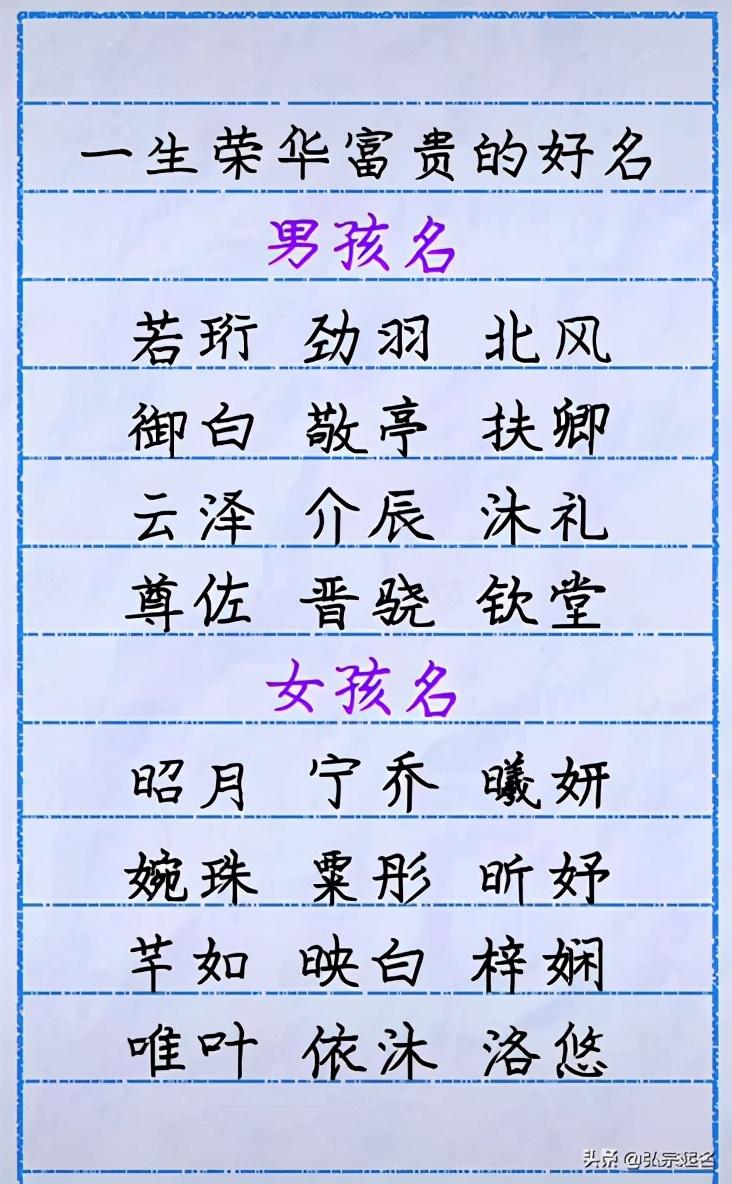 一生荣华富贵的好名
男孩名
若珩 劲羽 北风
御白 敬亭 扶卿
云泽 介辰 沐礼
尊佐 晋骁 钦堂
女孩名
昭月 宁乔 曦妍
婉珠 粟彤 昕妤
芊如 映白 梓娴
唯叶 依沐 洛悠
头条 @弘宗起名